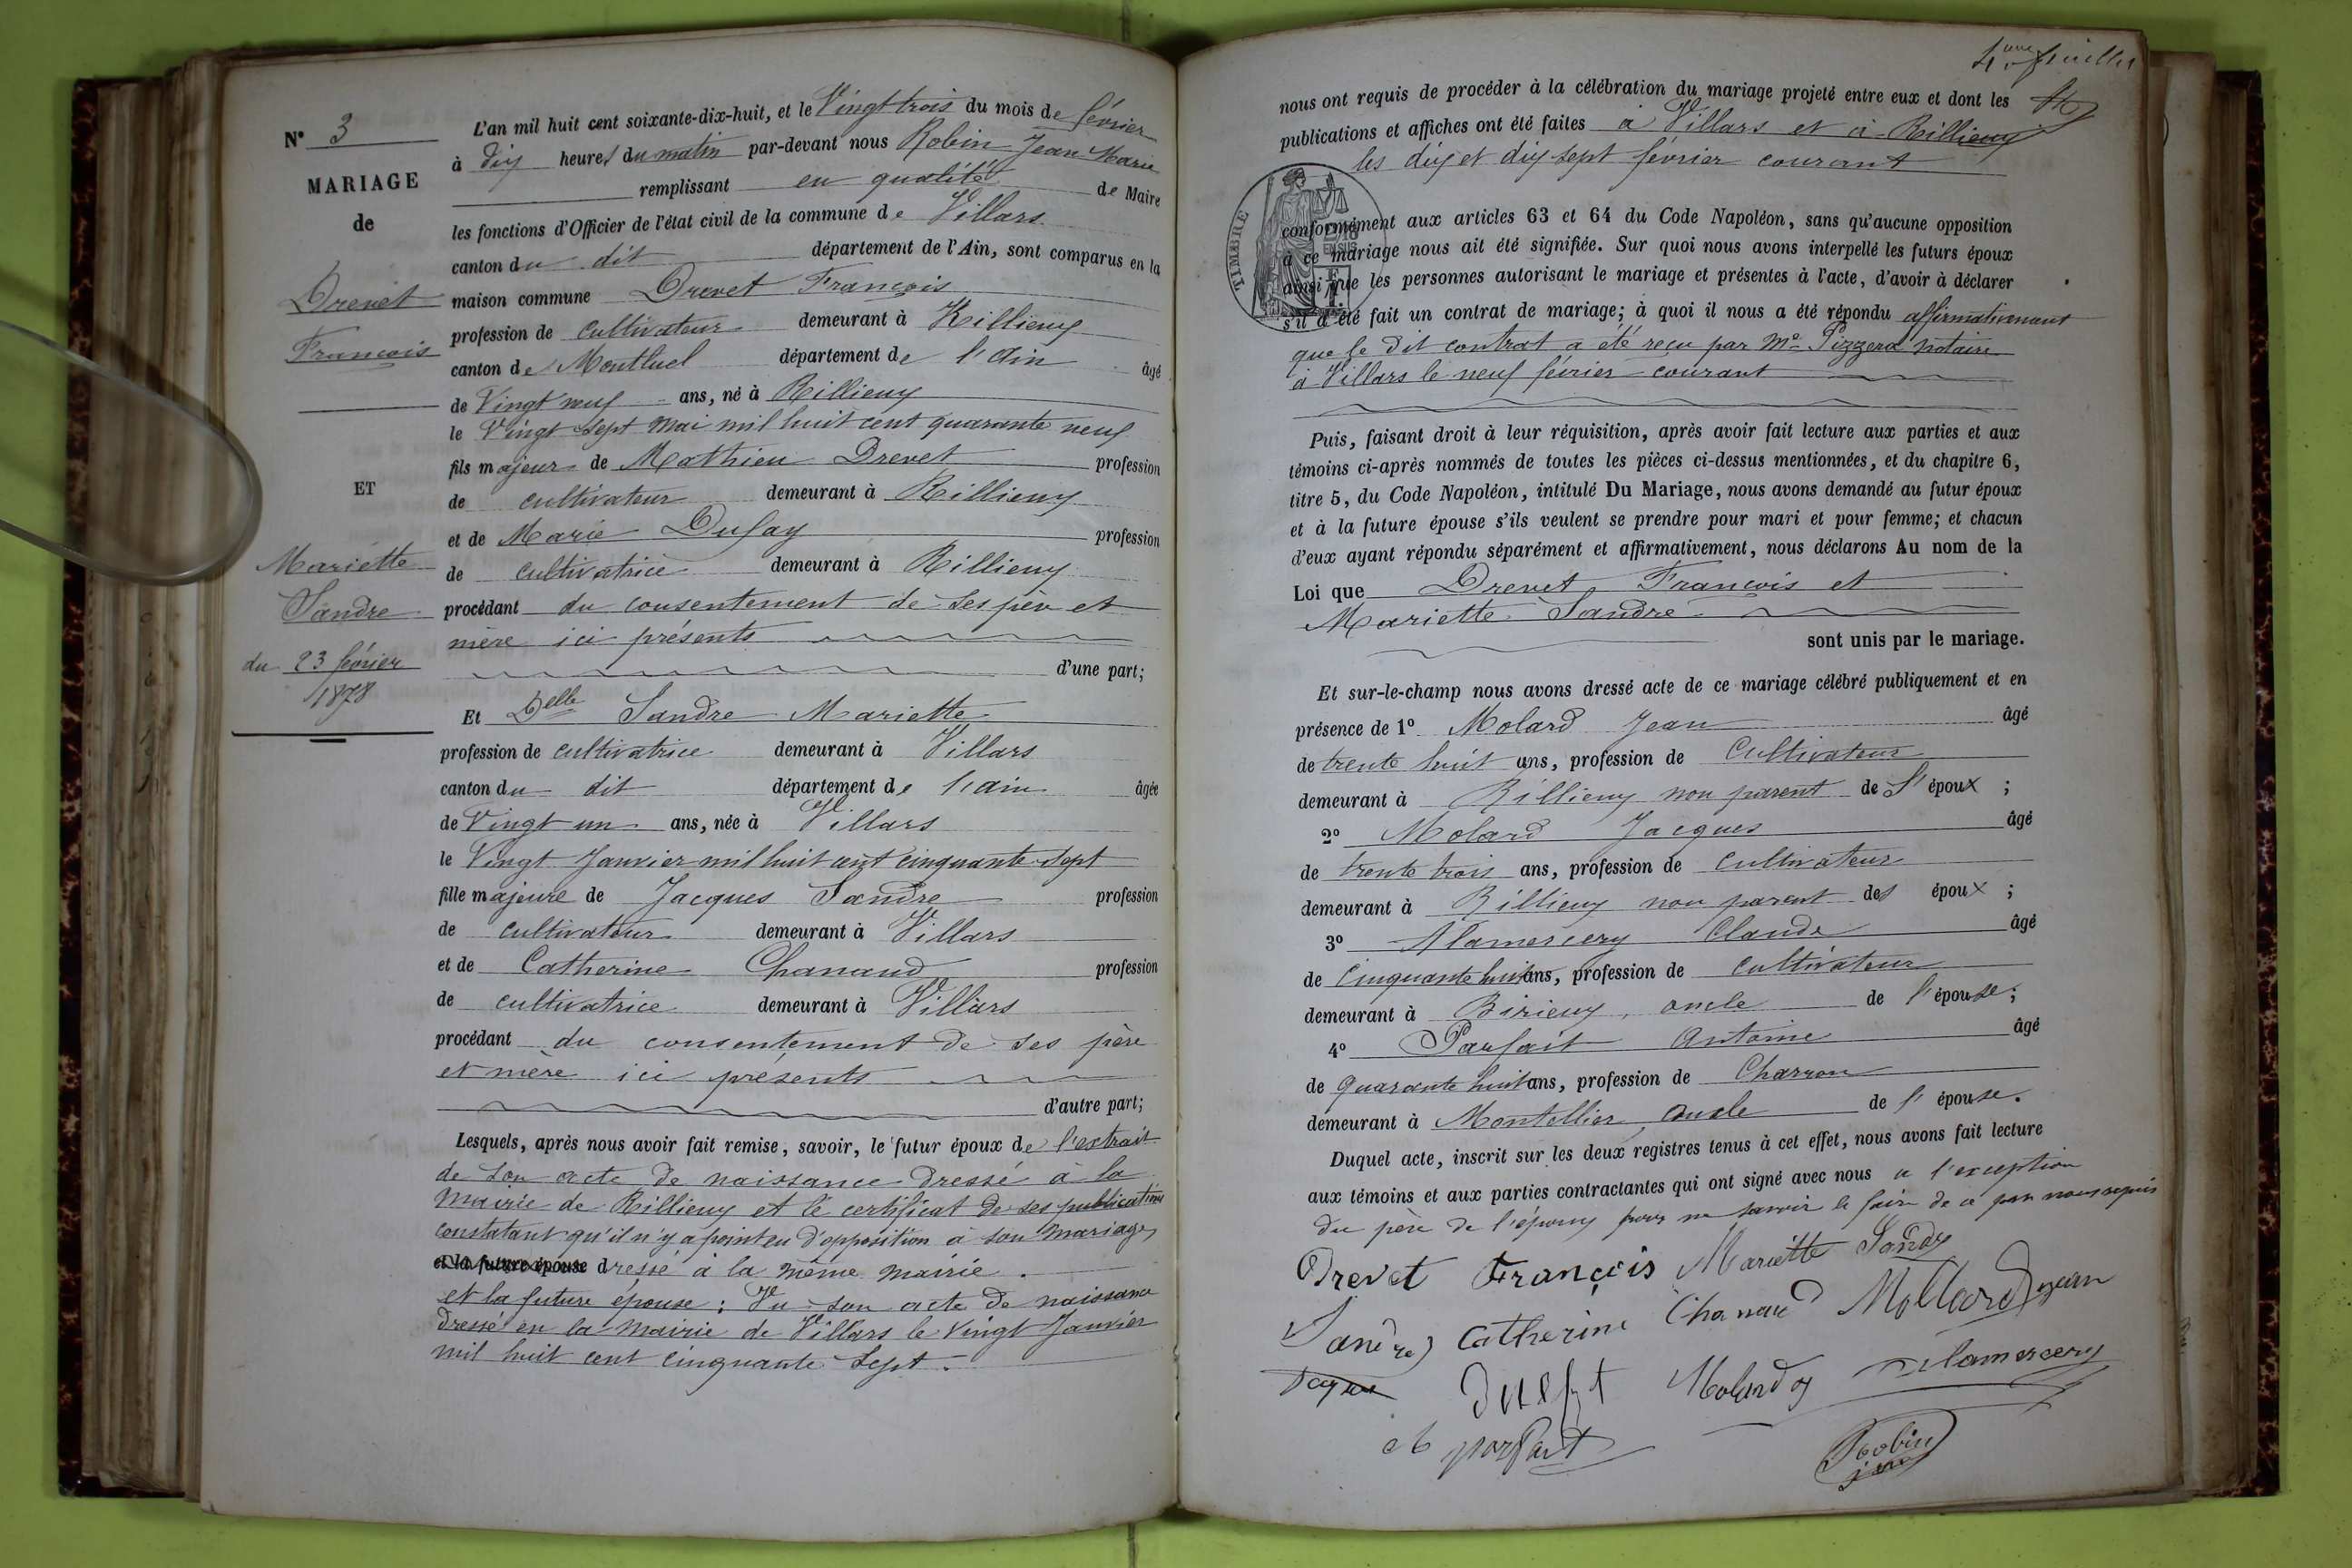 N° 3
MARIAGE
de
Drevet
François
ET
Mariette
Sandre
du 23 février
1878
L'an mil huit cent soixante-dix-huit, et le Vingt trois du mois de février
à dix heures du matin par-devant nous Robin Jean Marie
remplissant en qualité de Maire
les fonctions d'Officier de l'état civil de la commune de Villars
canton du dit département de l'Ain, sont comparus en la
maison commune Drevet François
profession de cultivateur demeurant à Rillieux
canton de Montluel département de l'Ain âgé
de Vingt neuf ans, né à Rillieux
le Vingt sept Mai mil huit cent quarante neuf
fils majeur de Mathieu Drevet profession
de cultivateur demeurant à Rillieux
et de Marie Dufay profession
de cultivatrice demeurant à Rillieux
procédant du consentement de ses père et
mère ici présents
d'une part;
Et Delle Sandre Mariette
profession de cultivatrice demeurant à Villars
canton du dit département de l'ain âgée
de Vingt un ans, née à Villars
le Vingt Janvier mil huit cent cinquante sept
fille majeure de Jacques Sandre profession
de cultivateur demeurant à Villars
et de Catherine Chanaud profession
de cultivatrice demeurant à Villars
procédant du consentement de ses père
et mère ici présents
d'autre part;
Lesquels, après nous avoir fait remise, savoir, le futur époux de l'extrait
de son acte de naissance dressé à la
Mairie de Rillieux et le certificat de ses publications
constatant qu'il n'y a point eu d'opposition à son mariage
et la future épouse dressé à la même mairie.
et la future épouse : Vu son acte de naissance
dressé en la Mairie de Villars le Vingt Janvier
mil huit cent cinquante sept.
4 feuillet
nous ont requis de procéder à la célébration du mariage projeté entre eux et dont les
publications et affiches ont été faites à Villars et à Rillieux
les dix et dix sept février courant
TIMBRE
conformément aux articles 63 et 64 du Code Napoléon, sans qu'aucune opposition
à ce mariage nous ait été signifiée. Sur quoi nous avons interpellé les futurs époux
ainsi que les personnes autorisant le mariage et présentes à l'acte, d'avoir à déclarer
s'il a été fait un contrat de mariage; à quoi il nous a été répondu affirmativement
que le dit contrat a été reçu par Me Pizzera Notaire
à Villars le neuf février courant
Puis, faisant droit à leur réquisition, après avoir fait lecture aux parties et aux
témoins ci-après nommés de toutes les pièces ci-dessus mentionnées, et du chapitre 6,
titre 5, du Code Napoléon, intitulé Du Mariage, nous avons demandé au futur époux
et à la future épouse s'ils veulent se prendre pour mari et pour femme; et chacun
d'eux ayant répondu séparément et affirmativement, nous déclarons Au nom de la
Loi que Drevet François et
Mariette Sandre
sont unis par le mariage.
Et sur-le-champ nous avons dressé acte de ce mariage célébré publiquement et en
présence de 1° Molard Jean âgé
de trente huit ans, profession de Cultivateur
demeurant à Rillieux non parent de l'époux ;
2° Molard Jacques âgé
de trente trois ans, profession de cultivateur
demeurant à Rillieux non parent des époux ;
3° Alamercery Claude âgé
de Cinquante huit ans, profession de cultivateur
demeurant à Birieux, oncle de l'épouse;
4° Parfait Antoine âgé
de quarante huit ans, profession de Charron
demeurant à Montellier, oncle de l'épouse.
Duquel acte, inscrit sur les deux registres tenus à cet effet, nous avons fait lecture
aux témoins et aux parties contractantes qui ont signé avec nous a l'exception
du père de l'époux pour ne savoir le faire de ce par nous requis
Drevet François Mariette Sandre
Sandre Catherine Chanaud Mollard Jean
Molard Alamercery
parfait
Robin